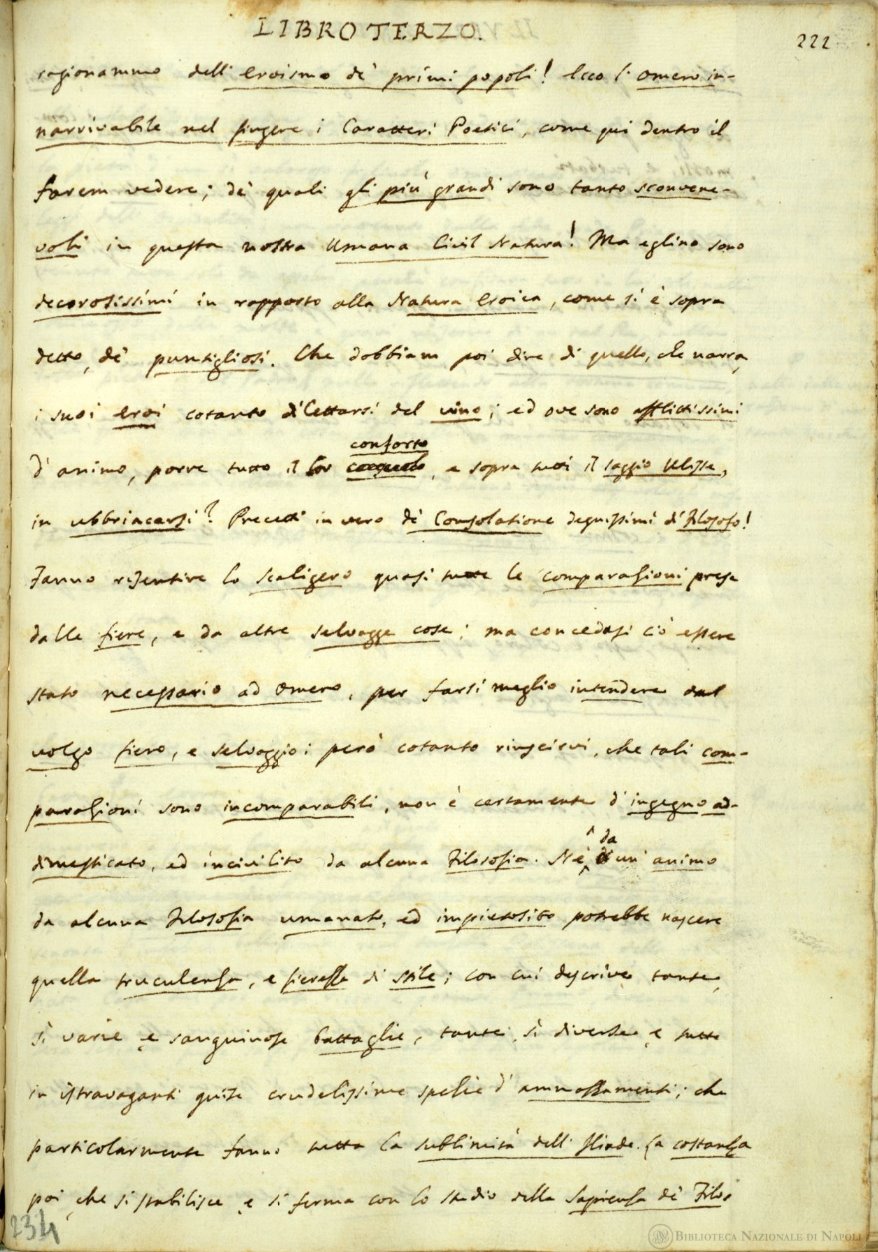 LIBRO TERZO.
222
ragionammo dell'eroismo de' primi popoli! Ecco l'Omero in-
narrivabile nel fingere i Caratteri Poetici, come qui dentro il
farem vedere; de' quali gli più grandi sono tanto sconvene-
voli in questa nostra Umana Civil Natura! Ma eglino sono
decorosissimi in rapporto alla Natura Eroica, come si è sopra
detto, de' puntigliosi. Che dobbiam poi dire di quello, che narra,
i suoi eroi cotanto dilettarsi del vino; ed ove sono afflittissimi
d'animo, porre tutto il lor conforto, e sopra tutti il saggio Ulisse,
in ubbriacarsi? Precetti in vero di Consolazione degnissimi di Filosofo!
Fanno risentire lo Scaligero quasi tutte le comparazioni prese
dalle fiere, e da altre selvagge cose; ma concedasi ciò essere
stato necessario ad Omero, per farsi meglio intendere dal
volgo fiero, e selvaggio: però cotanto riuscirvi, che tali com-
parazioni sono incomparabili, non è certamente d'ingegno ad-
dimesticato, ed incivilito da alcuna Filosofia. Nè da un'animo
da alcuna Filosofia umanato, ed impietosito potrebbe nascere
quella truculenza, e fierezza di stile; con cui descrive tante,
sì varie e sanguinose battaglie, tante, sì diverse e tutte
in istravaganti guise crudelissime spezie d'ammazzamenti; che
particolarmente fanno tutta la sublimità dell'Iliade. La costanza
poi, che si stabilisce e si ferma con lo studio della Sapienza de' Filos
234
BIBLIOTECA NAZIONALE DI NAPOLI